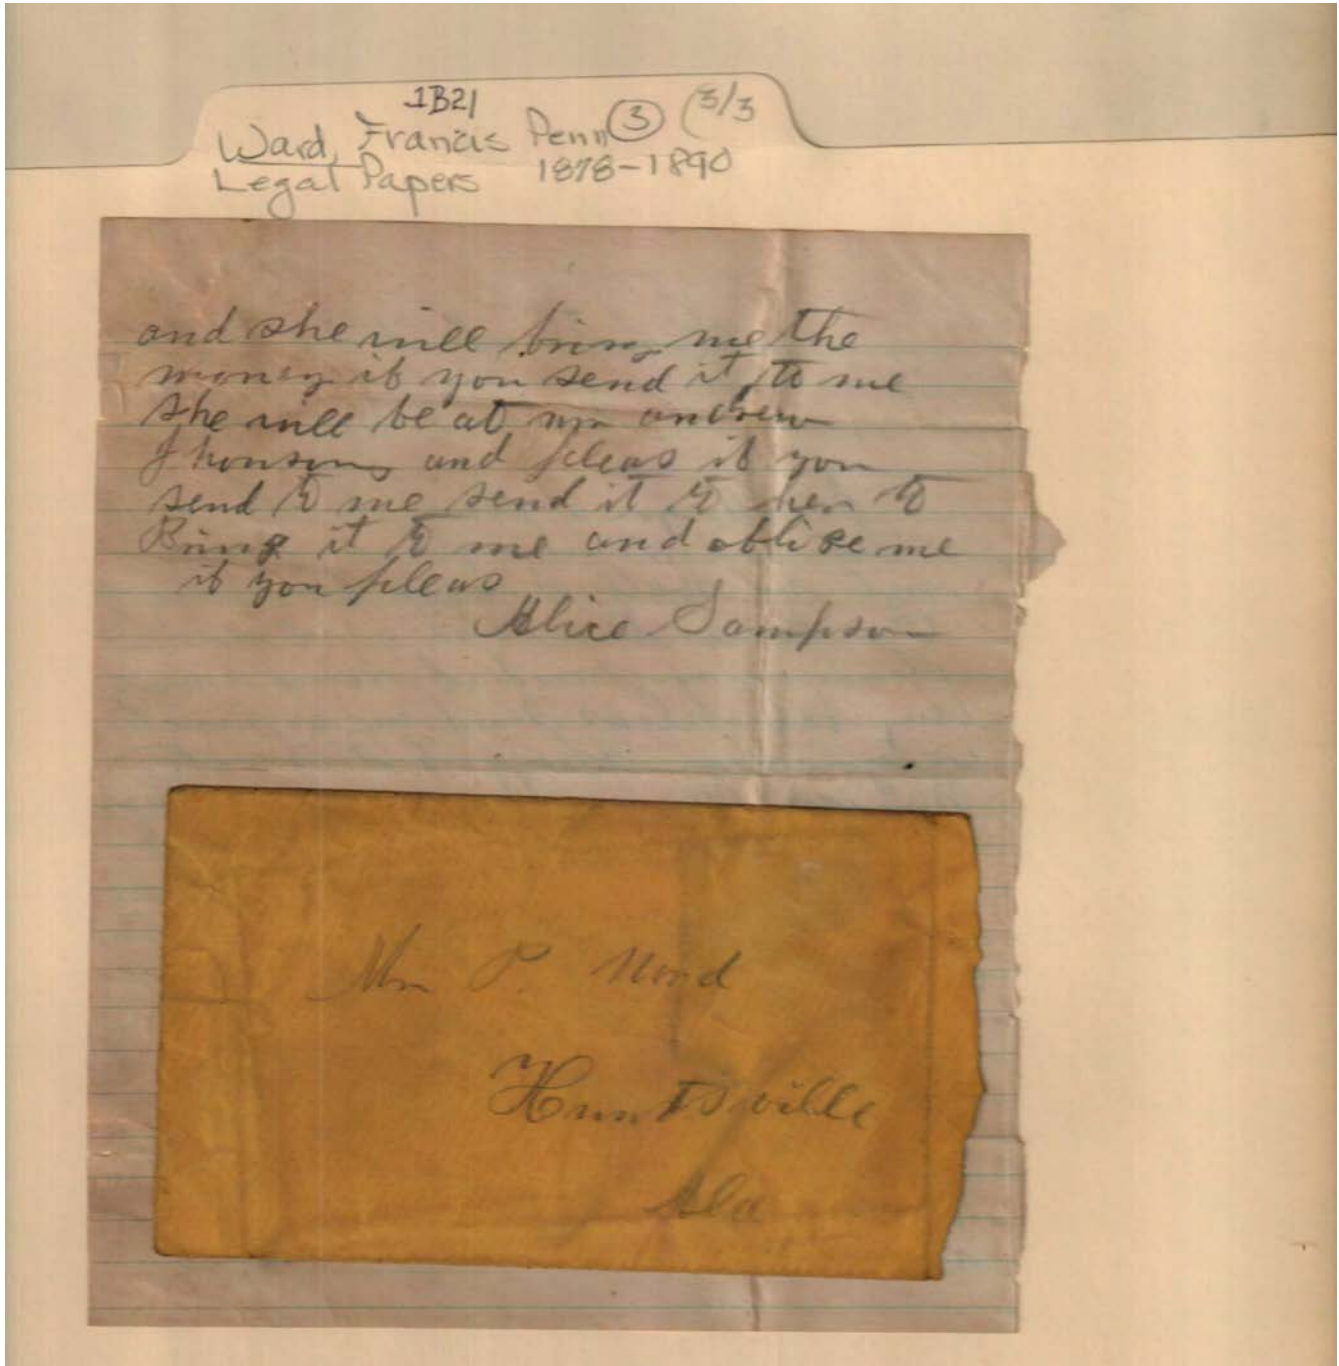 1B21
Ward, Francis Penn ③ (3/3
Legal Papers 1878-1890
and she will bring me the
money if you send it to me
she will be at mr andrew
Jhonsons and pleas if you
send to me send it to her to
Bring it to me and oblige me
if you pleas
Alice Sampson
Mr P. Word
Huntsville
Ala